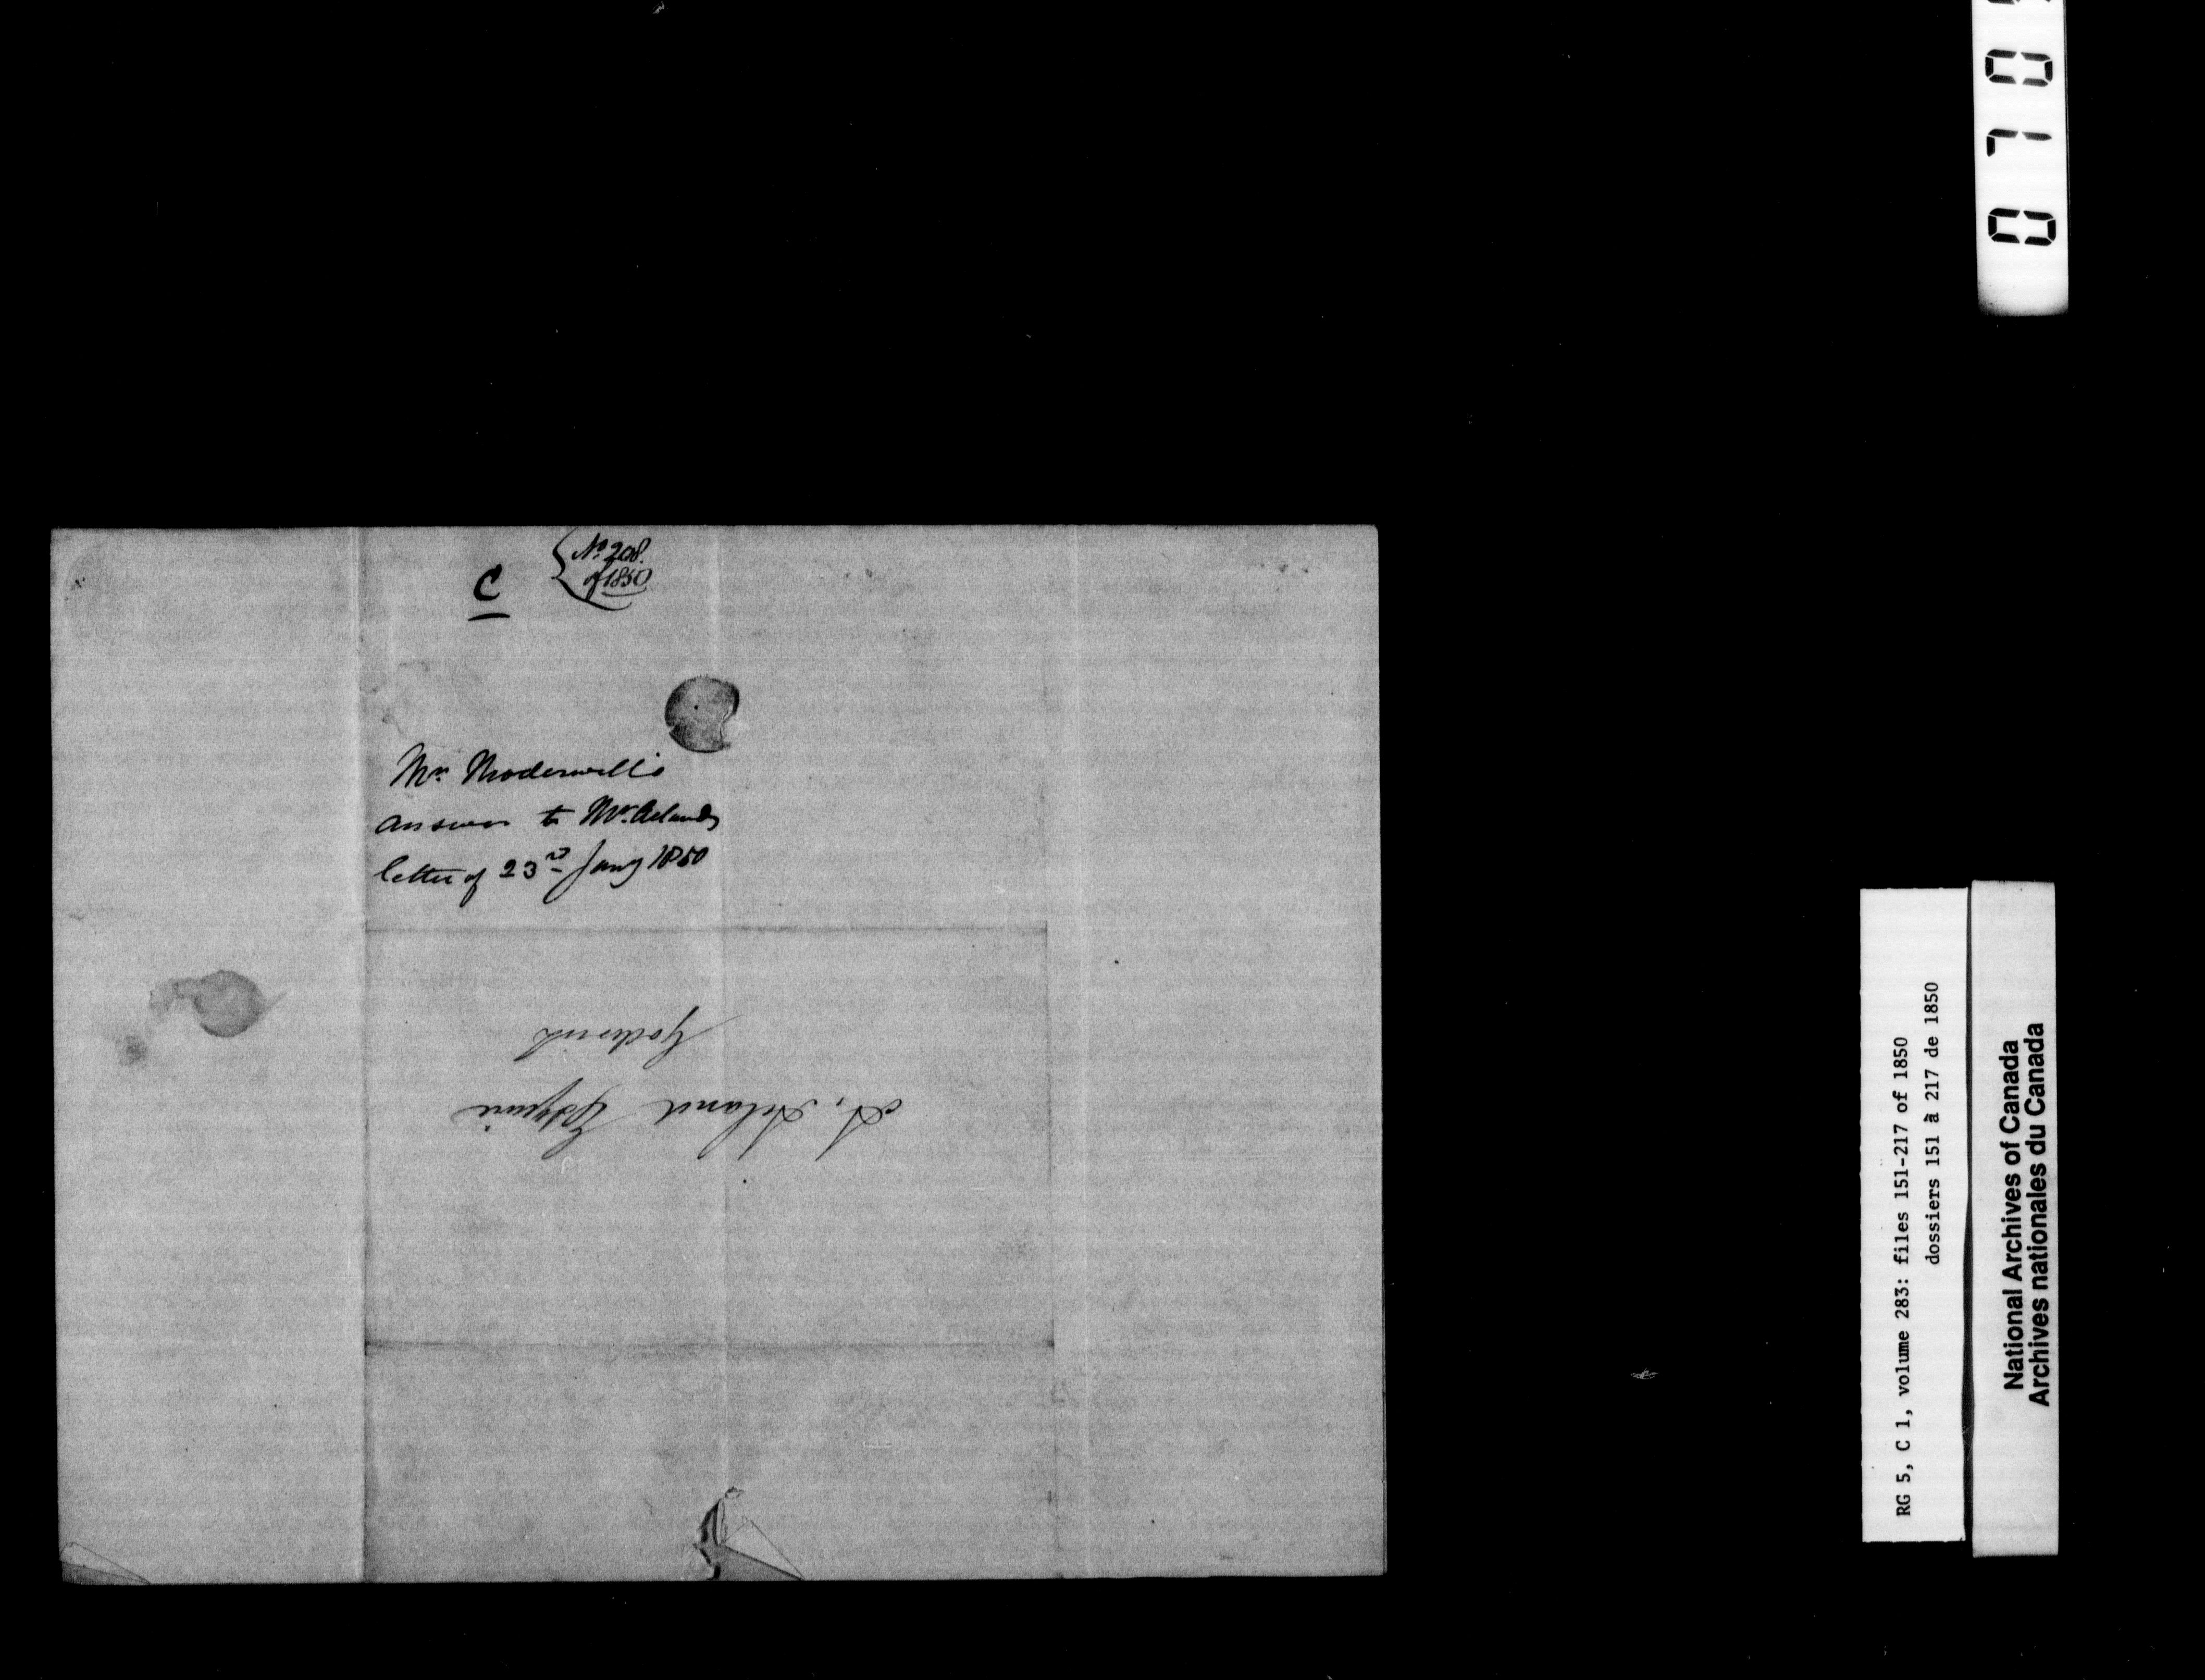 C
No. 208.
of 1850
Mr. Moderwell's
answer to Mr. Acland's
letter of 23rd Jany 1850
A. Acland Esquire
Goderich
RG 5, C 1, volume 283: files 151-217 of 1850
dossiers 151 à 217 de 1850
National Archives of Canada
Archives nationales du Canada
070